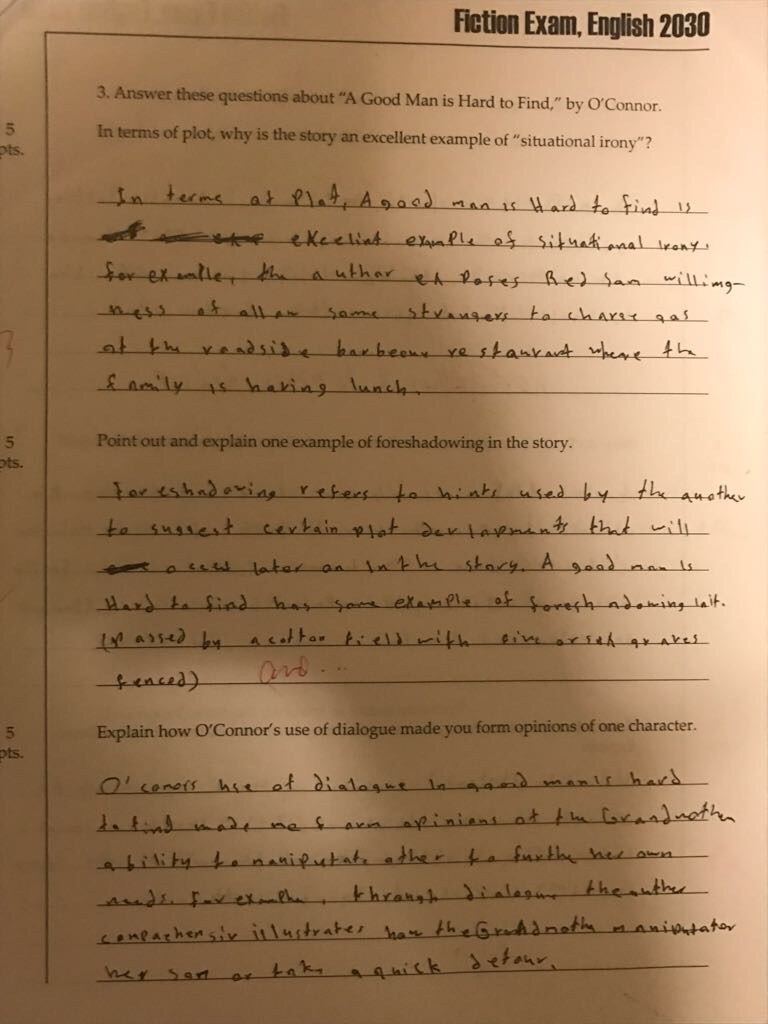 Fiction Exam, English 2030
3. Answer these questions about "A Good Man is Hard to Find," by O'Connor.
5
pts.
In terms of plot, why is the story an excellent example of "situational irony"?
In terms of Plot, A good man is Hard to find is
excelint example of situational irony.
for example, the author exposes Red Sam willimg-
ness of allow some strangers to charge gas
3
at the roadside barbecue restaurant where the
family is having lunch.
5
pts.
Point out and explain one example of foreshadowing in the story.
foreshadowing refers to hints used by the another
to suggest certain plot developments that will
occur later on in the story. A good man is
Hard to find has some example of foreshadowing
(passed by a cotton field with five or graves
fenced) and...
5
pts.
Explain how O'Connor's use of dialogue made you form opinions of one character.
O'conors use of dialogue in good man is hard
to find made me form opinions of the Grandmother
ability to manipulate other to further her own
needs. for example, through dialogue the author
illustrates how the Grandmoth manipulator
her son or take a quick detour.